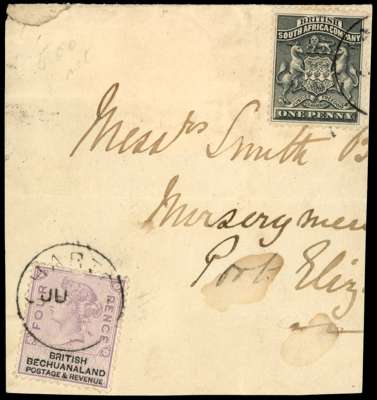 BRITISH
SOUTH AFRICA COMPANY
ONE PENNY
Messrs Smith B
Nurserymen
Port Eliz
FOUR PENCE
JU
BRITISH
BECHUANALAND
POSTAGE & REVENUE